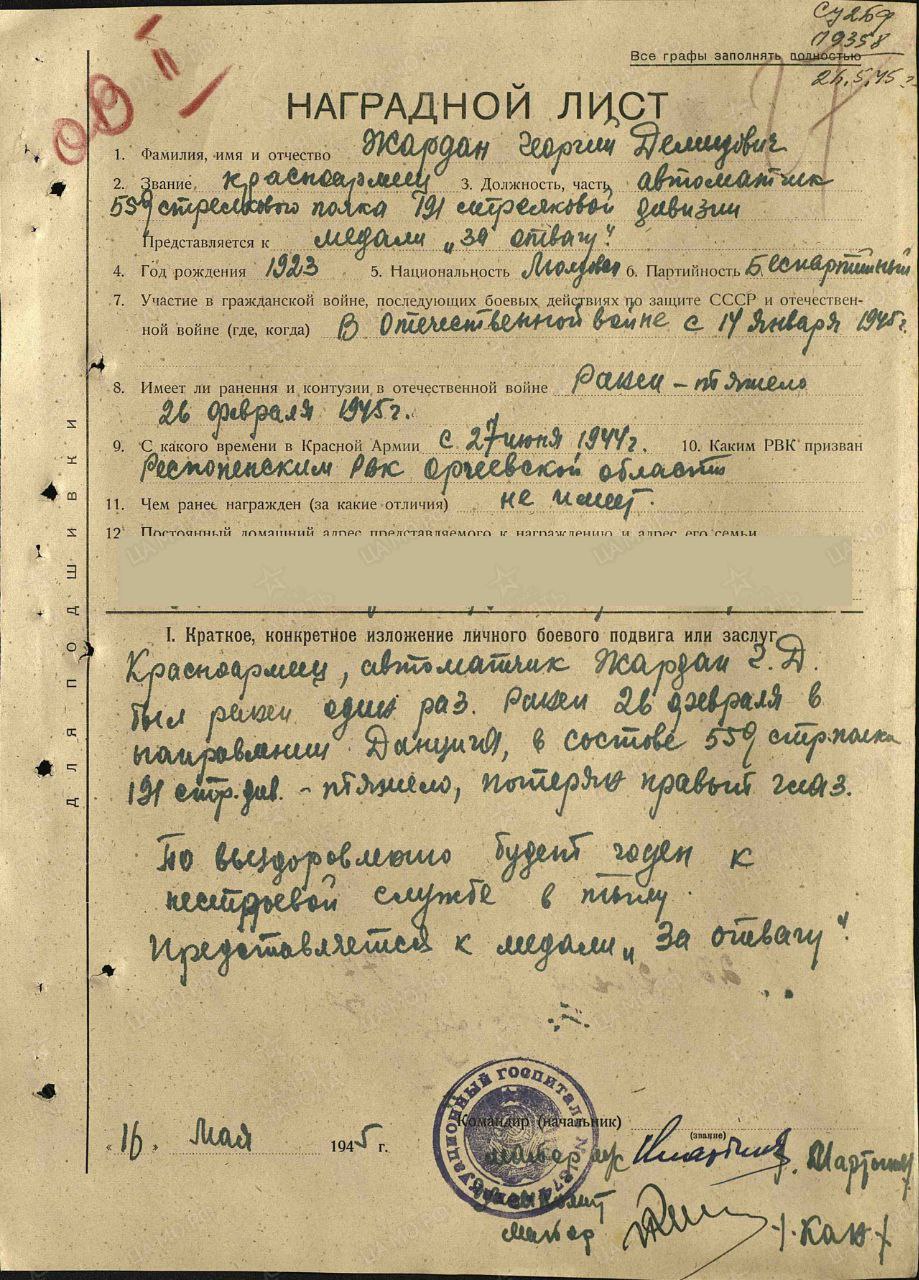 Все графы заполнять полностью
26.5.45 г
НАГРАДНОЙ ЛИСТ
1. Фамилия, имя и отчество Жардан Георгий Демидович
2. Звание красноармеец 3. Должность, часть автоматчик
559 стрелкового полка 191 стрелковой дивизии
Представляется к медали „за отвагу".
4. Год рождения 1923 5. Национальность Молдован 6. Партийность Беспартийный
7. Участие в гражданской войне, последующих боевых действиях по защите СССР и отечествен-
ной войне (где, когда) В Отечественной войне с 14 января 1945г.
8. Имеет ли ранения и контузии в отечественной войне Ранен – тяжело
26 февраля 1945г.
9. С какого времени в Красной Армии с 27 июня 1944г. 10. Каким РВК призван
РВК Оргеевской области
11. Чем ранее награжден (за какие отличия) не имеет.
12 Постоянный домашний адрес представляемого к награждению и адрес его семьи
ДЛЯ ПОДШИВКИ
I. Краткое, конкретное изложение личного боевого подвига или заслуг
Красноармеец, автоматчик Жардан Г. Д.
был ранен один раз. Ранен 26 февраля в
направлении Данцига, в составе 559 стр.полка
191 стр.див. – тяжело, потерял правый глаз.
По выздоровлению будет годен к
нестроевой службе в тылу.
Представляется к медали „За отвагу".
Командир (начальник)
(звание)
„16" Мая 1945 г.
майор м/с
майор /Кац/